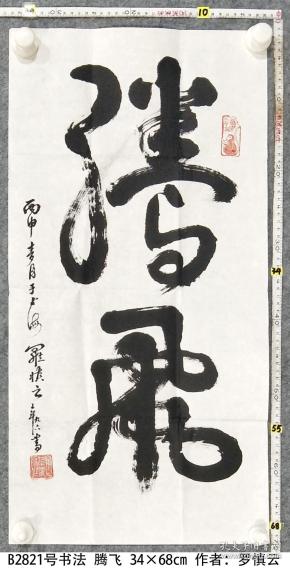 騰飛
丙申春月于上海 羅慎云 年九六書
B2821号书法 腾飞 34×68cm 作者：罗慎云